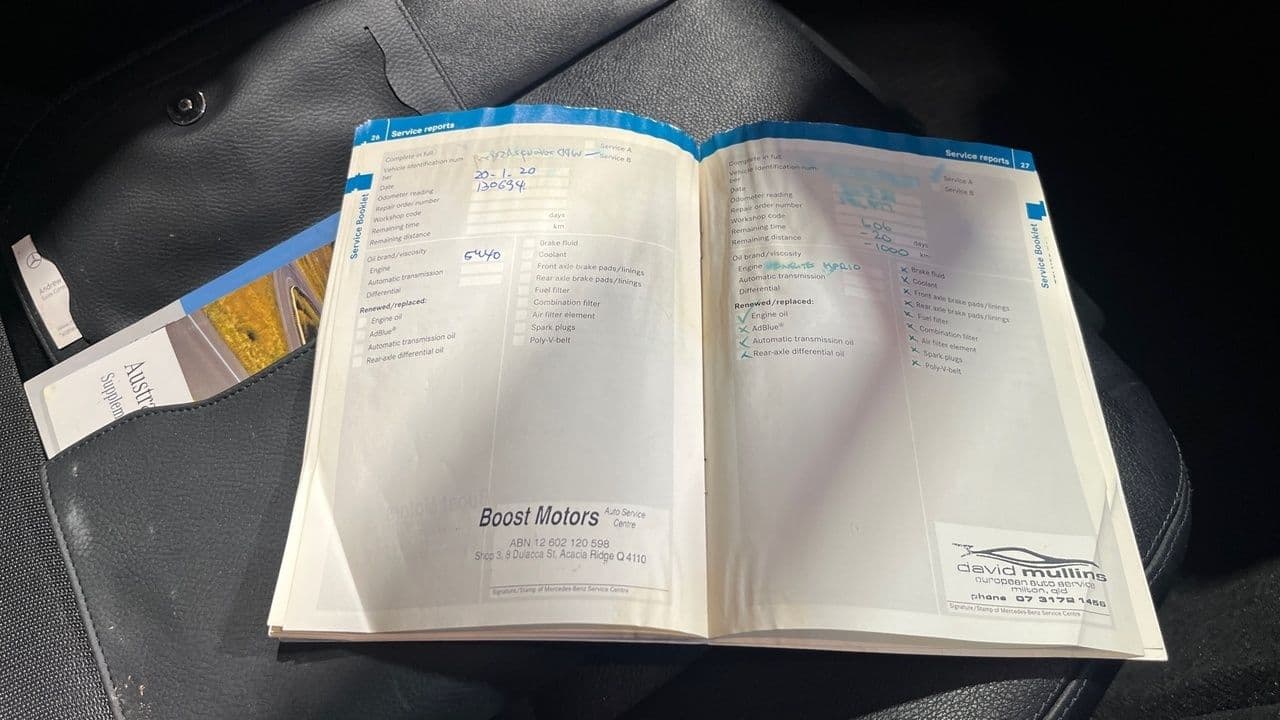 26 Service reports
Service Booklet
Complete in full
Vehicle identification num
ber
Date
Odometer reading
Repair order number
Workshop code
Remaining time
Remaining distance
Service A
Service B
20-1-20
130694
days
km
Oil brand/viscosity
Engine
Automatic transmission
Differential
5W40
Renewed/replaced:
Engine oil
AdBlue®
Automatic transmission oil
Rear-axle differential oil
Brake fluid
Coolant
Front axle brake pads/linings
Rear axle brake pads/linings
Fuel filter
Combination filter
Air filter element
Spark plugs
Poly-V-belt
Boost Motors Auto Service
Centre
ABN 12 602 120 598
Shop 3, 8 Dulacca St, Acacia Ridge Q 4110
Signature/Stamp of Mercedes-Benz Service Centre
Service reports 27
Service Booklet
Complete in full
Vehicle identification num
ber
Date
Odometer reading
Repair order number
Workshop code
Remaining time
Remaining distance
Service A
Service B
606
-20 days
-1000 km
Oil brand/viscosity
Engine
Automatic transmission
Differential
Renewed/replaced:
Engine oil
AdBlue®
Automatic transmission oil
Rear-axle differential oil
Brake fluid
Coolant
Front axle brake pads/linings
Rear axle brake pads/linings
Fuel filter
Combination filter
Air filter element
Spark plugs
Poly-V-belt
david mullins
european auto service
milton, qld
phone 07 3172 1456
Signature/Stamp of Mercedes-Benz Service Centre
Andrew
Austr
Supplem